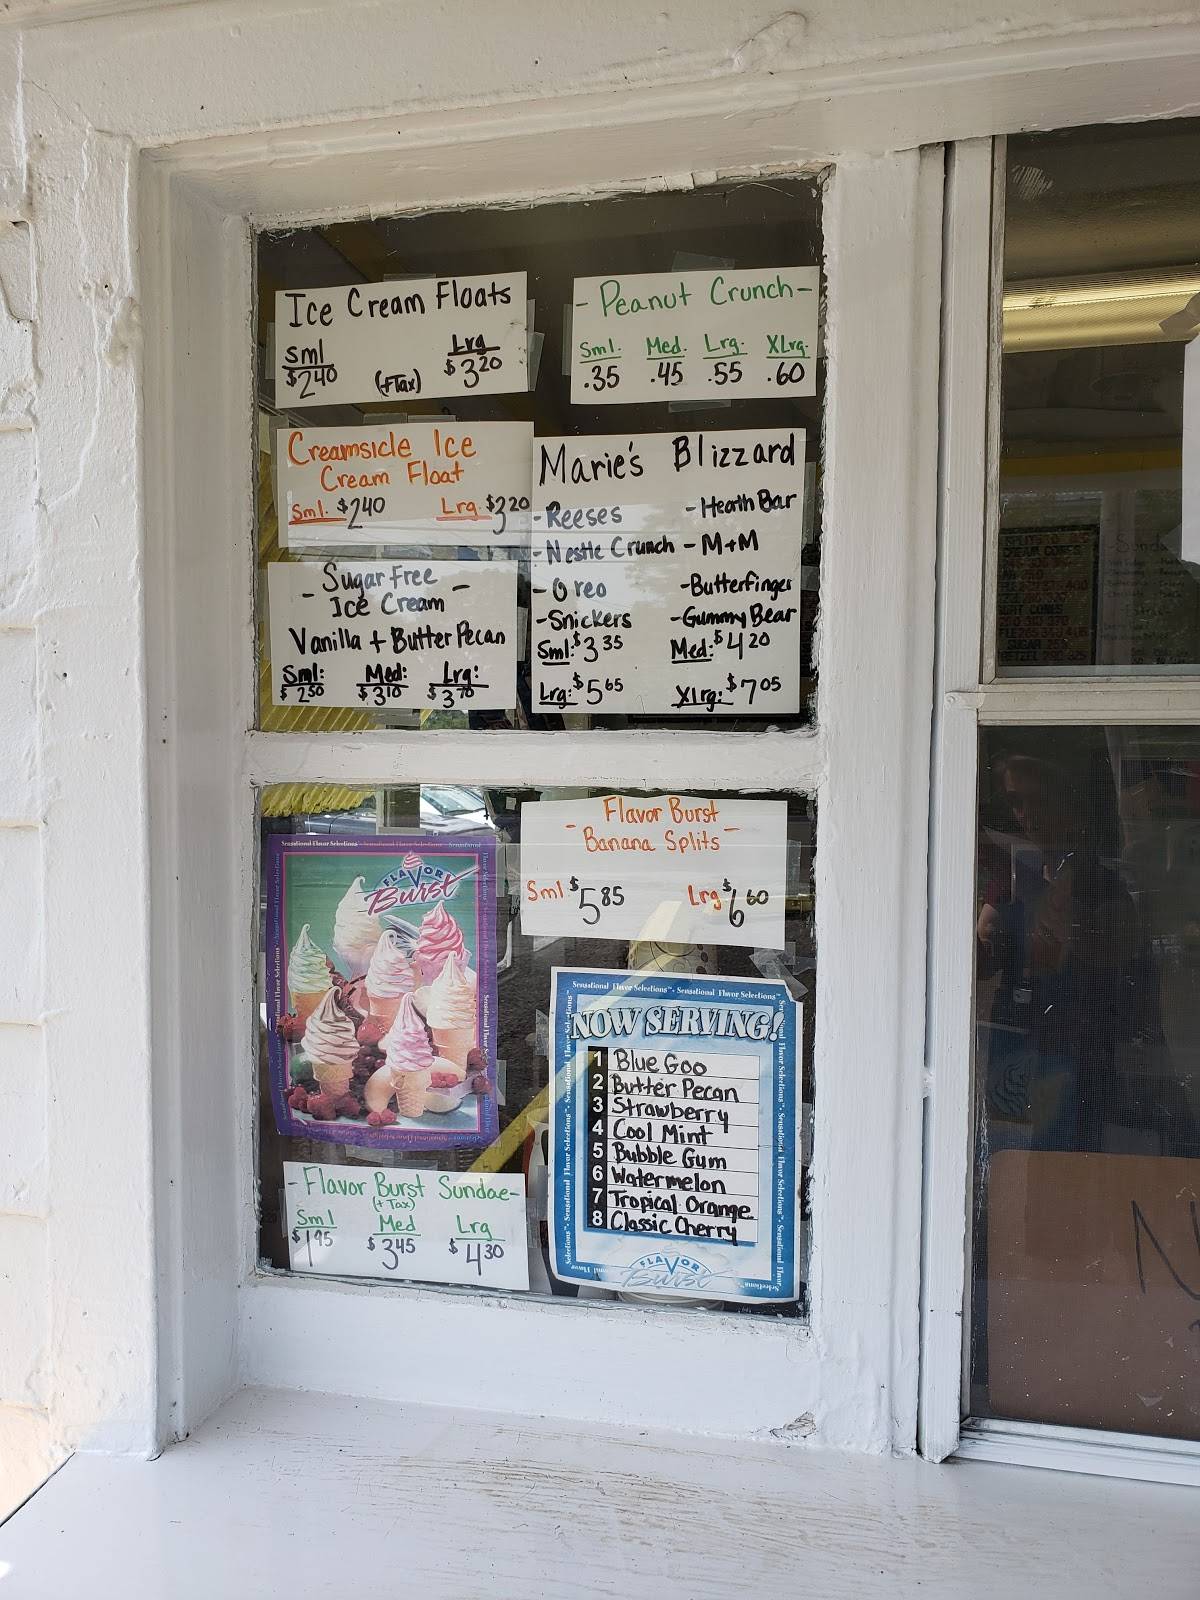 Ice Cream Floats
Sml Lrg
$2.40 (+Tax) $3.20
- Peanut Crunch -
Sml. Med. Lrg. XLrg.
.35 .45 .55 .60
Creamsicle Ice
Cream Float
Sml. $2.40 Lrg. $3.20
Marie's Blizzard
- Reeses - Heath Bar
- Nestle Crunch - M+M
- Oreo - Butterfinger
- Snickers - Gummy Bear
Sml: $3.35 Med: $4.20
Lrg: $5.65 Xlrg: $7.05
- Sugar Free -
Ice Cream
Vanilla + Butter Pecan
Sml: Med: Lrg:
$2.50 $3.10 $3.70
- Flavor Burst -
Banana Splits
Sml $5.85 Lrg $6.60
Sensational Flavor Selections
FLAVOR
Burst
- Flavor Burst Sundae -
(+ Tax)
Sml Med Lrg
$1.95 $3.45 $4.30
Sensational Flavor Selections™ • Sensational Flavor Selections™
NOW SERVING!
1 Blue Goo
2 Butter Pecan
3 Strawberry
4 Cool Mint
5 Bubble Gum
6 Watermelon
7 Tropical Orange
8 Classic Cherry
FLAVOR
Burst